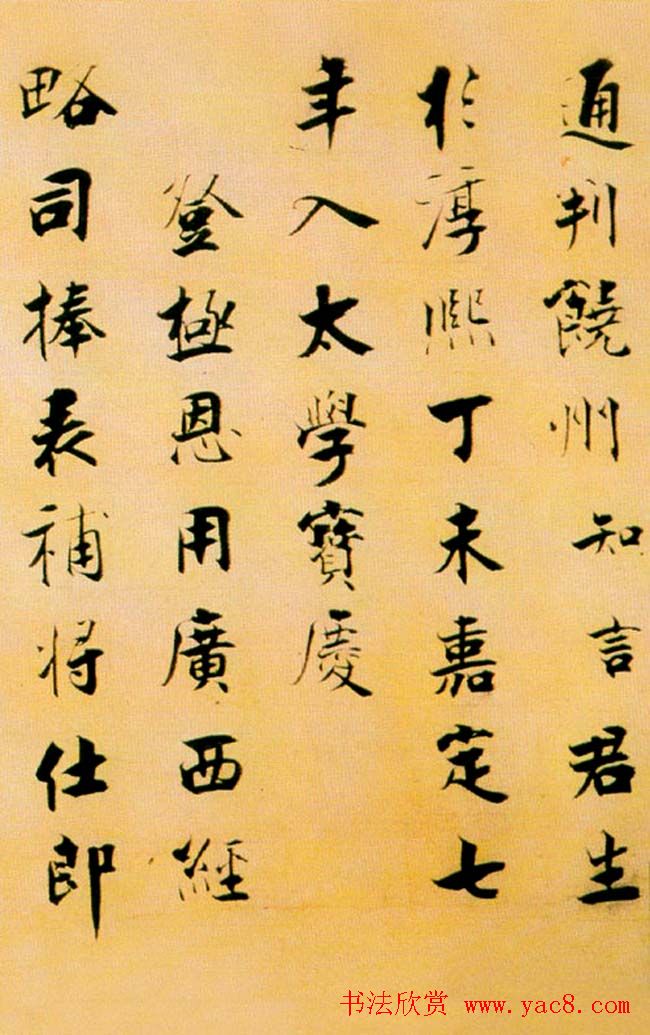 通判饒州知言君生
於淳熙丁未嘉定七
年入太學寶慶
登極恩用廣西經
略司捧表補將仕郎
书法欣赏 www.yac8.com